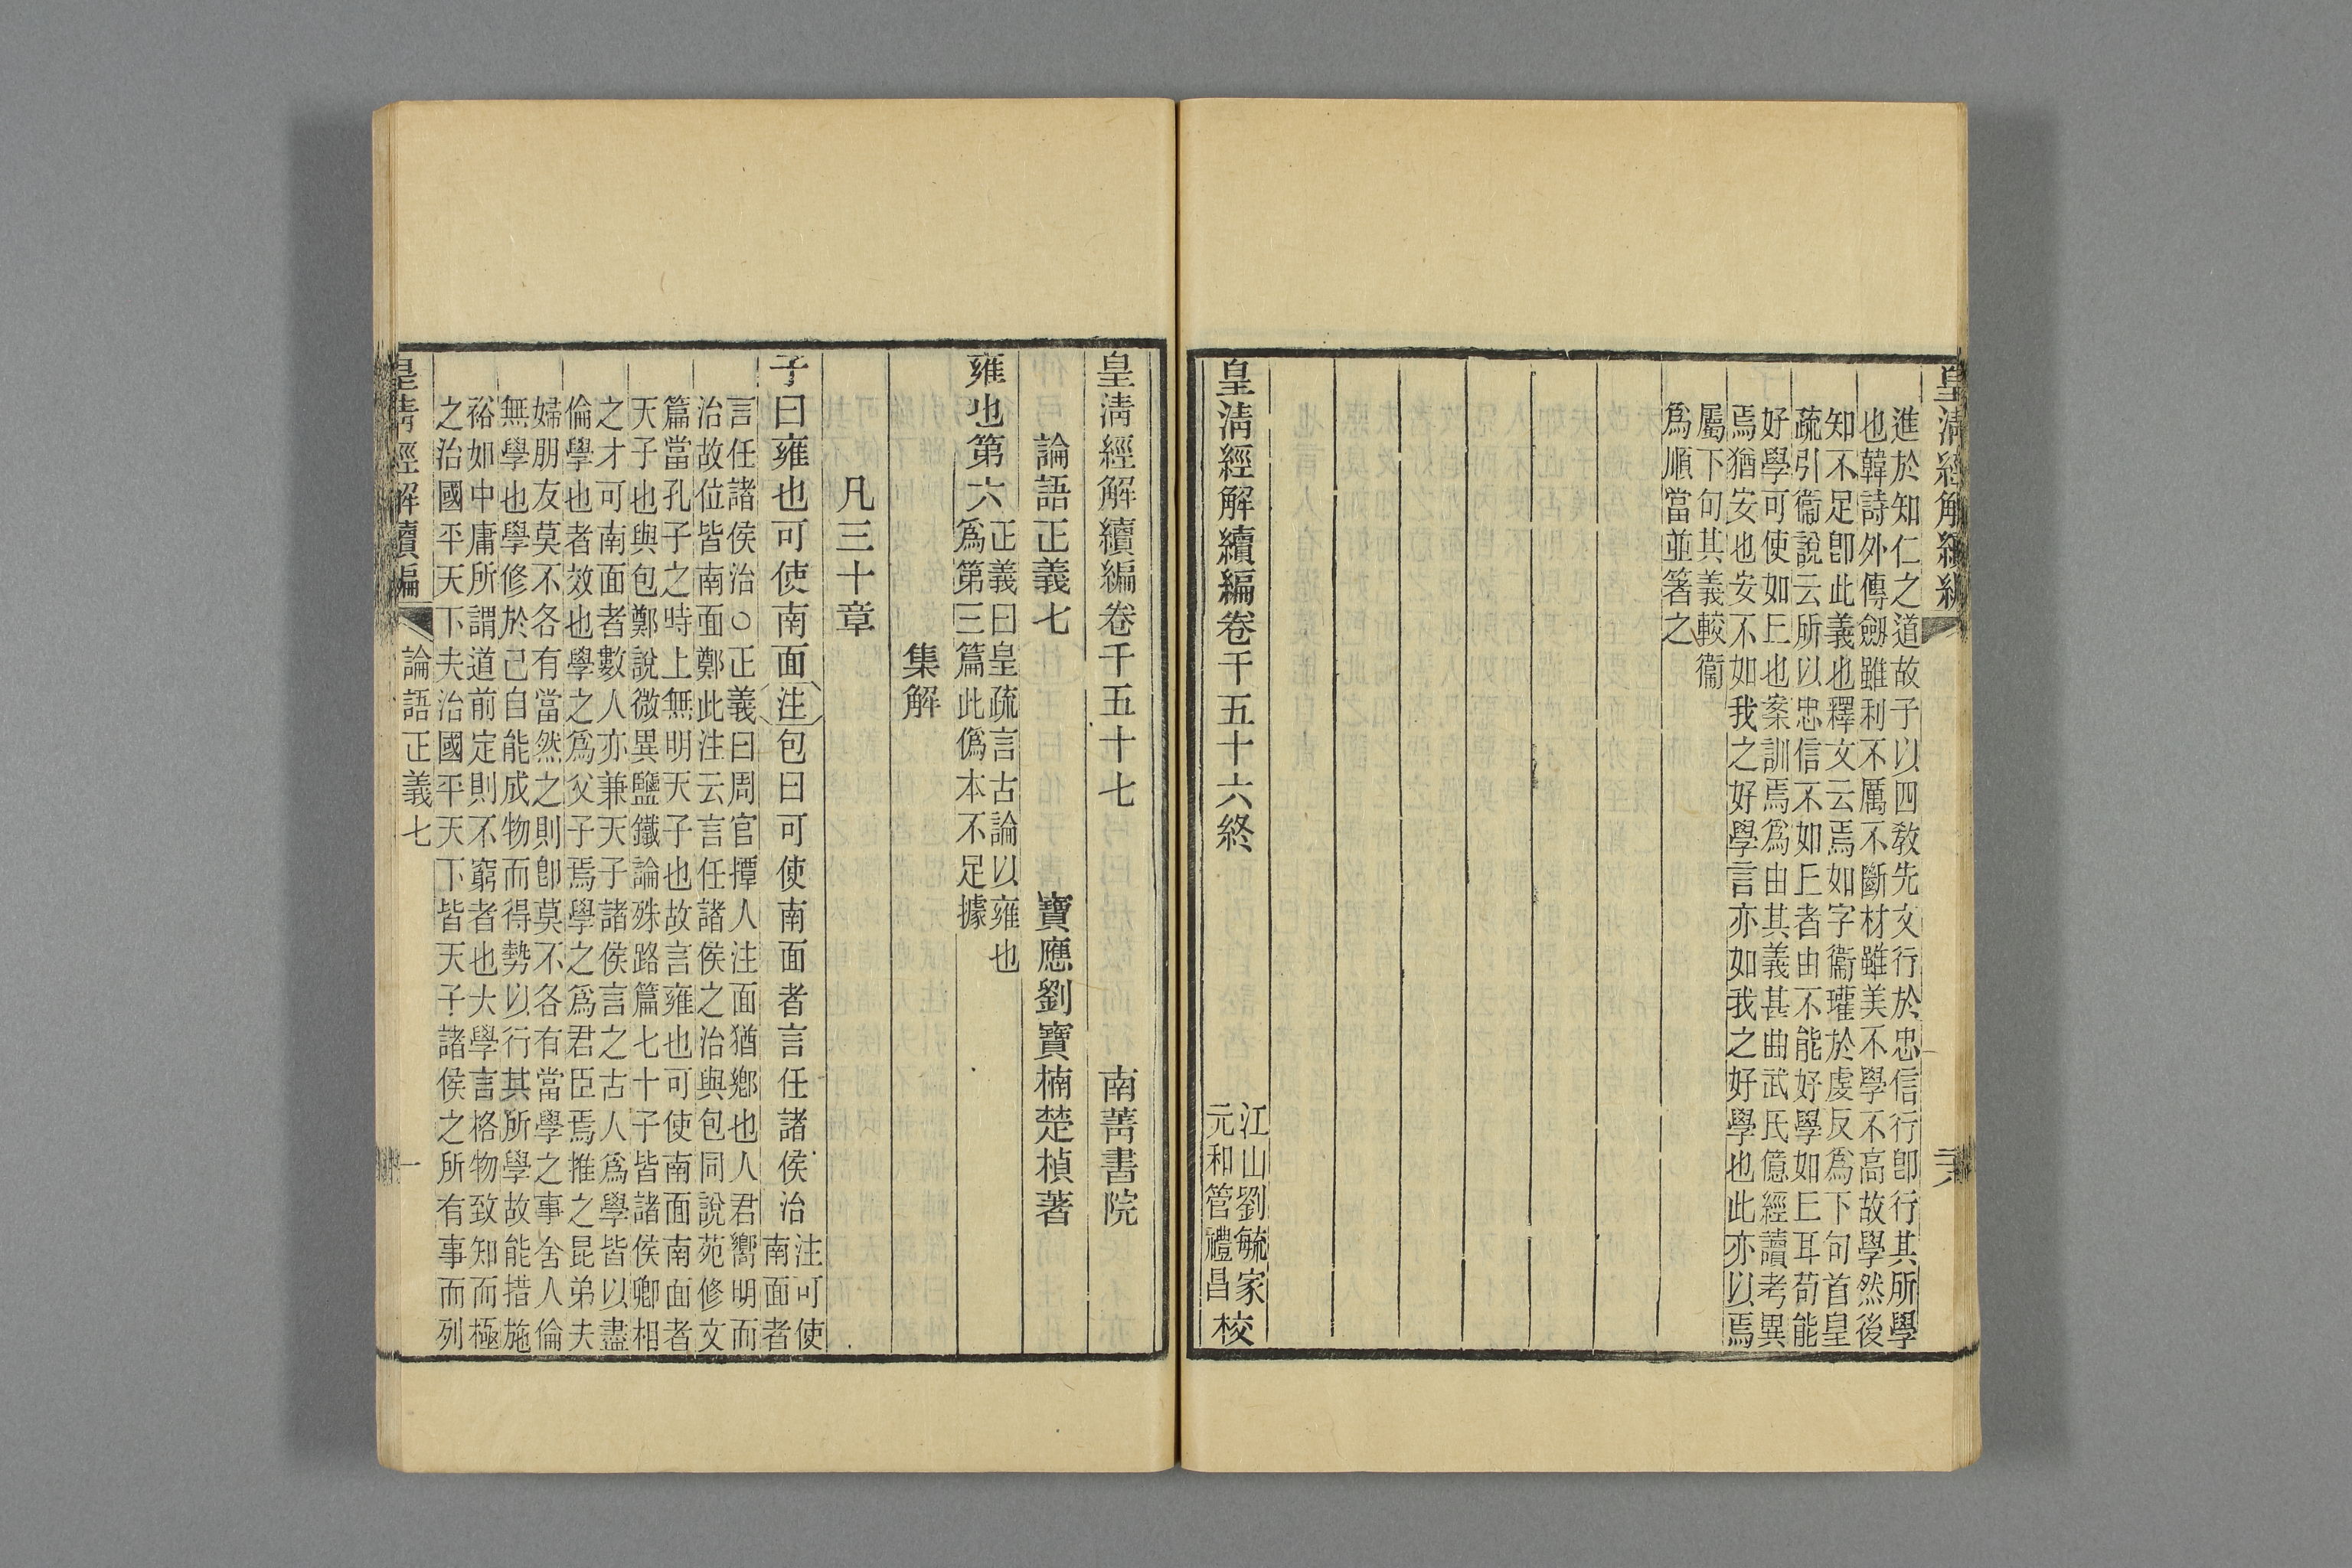 皇清經解續編
二六
進於知仁之道故子以四敎先文行於忠信行卽行其所學
也韓詩外傳劔雖利不厲不斷材雖美不學不高故學然後
知不足卽此義也釋文云焉如字衞瓘於虔反爲下句首皇
疏引衞說云所以忠信不如𠀉者由不能好學如𠀉耳苟能
好學可使如𠀉也案訓焉爲由其義甚曲武氏億經讀考異
焉猶安也安不如我之好學言亦如我之好學也此亦以焉
屬下句其義較衞
爲順當並箸之
皇淸經解續編卷千五十六終
江山劉毓家
元和管禮昌
校
皇淸經解續編卷千五十七
南菁書院
論語正義七
寶應劉寶楠楚楨著
雍也第六
正義曰皇疏言古論以雍也
爲第三篇此僞本不足據
集解
凡三十章
子曰雍也可使南面注包曰可使南面者言任諸侯治
注可使
南面者
言任諸侯治○正義曰周官撢人注面猶鄕也人君嚮明而
治故位皆南面鄭此注云言任諸侯之治與包同說苑修文
篇當孔子之時上無明天子也故言雍也可使南面南面者
天子也與包鄭說微異鹽鐵論殊路篇七十子皆諸侯卿相
之才可南面者數人亦兼天子諸侯言之古人爲學皆以盡
倫學也者效也學之爲父子焉學之爲君臣焉推之昆弟夫
婦朋友莫不各有當然之則卽莫不各有當學之事舍人倫
無學也學修於己自能成物而得勢以行其所學故能措施
裕如中庸所謂道前定則不窮者也大學言格物致知而極
之治國平天下夫治國平天下皆天子諸侯之所有事而列
皇淸經解續編
論語正義七
一